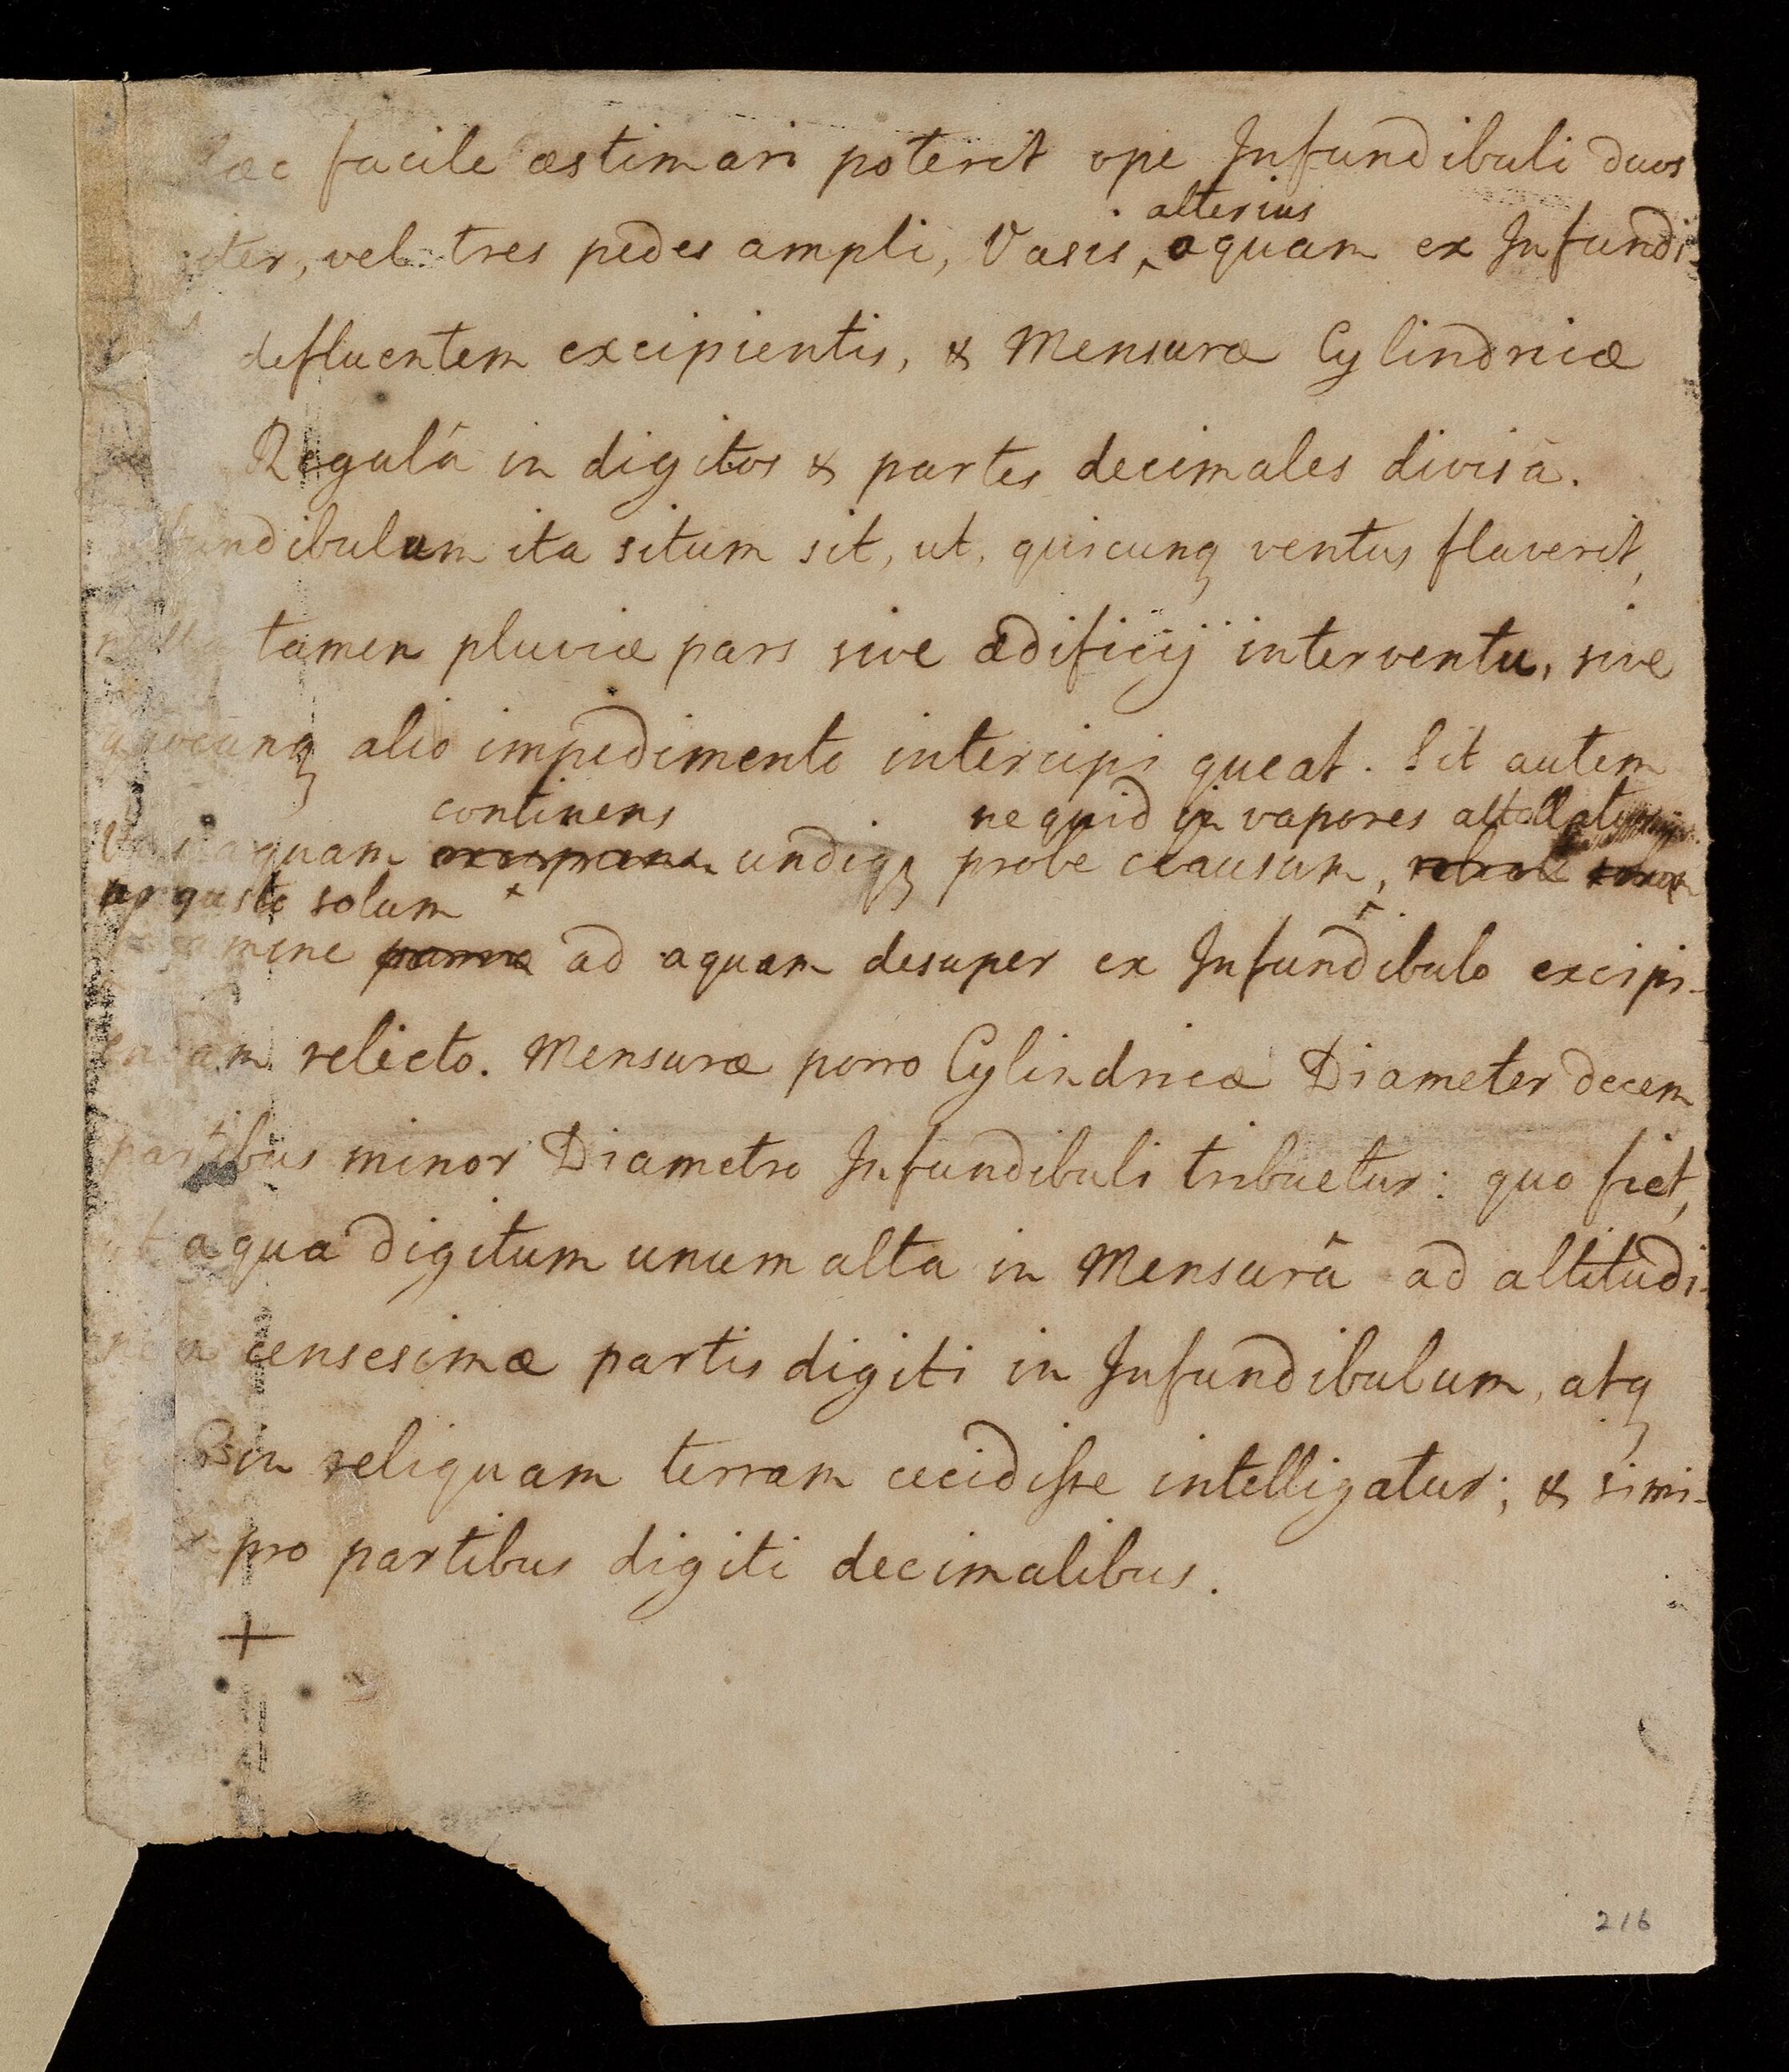 facile æstimari poterit ope Infundibuli duos
alterius
vel tres pedes ampli, Vasis, aquam ex Infundi-
defluentem excipientis, & Mensuræ Cylindricæ
Regulâ in digitos & partes decimales divisâ.
fundibulum ita situm sit, ut, quicunq ventus flaverit,
tamen pluviæ pars sive ædificij interventu, sive
alio impedimento intercipi queat. Sit autem
continens ne quid in vapores attollatur
aquam undiq probe clausum,
angusto solum
mine ad aquam desuper ex Infundibulo excipi-
relicto. Mensuræ porro Cylindricæ Diameter decem
partibus minor Diametro Infundibuli tribuetur: quo fiet,
ut aqua digitum unum alta in Mensurâ ad altitudi-
censesimæ partis digiti in Infundibulum, atq
in reliquam terram cecidisse intelligatur; & simi-
pro partibus digiti decimalibus.
+
216